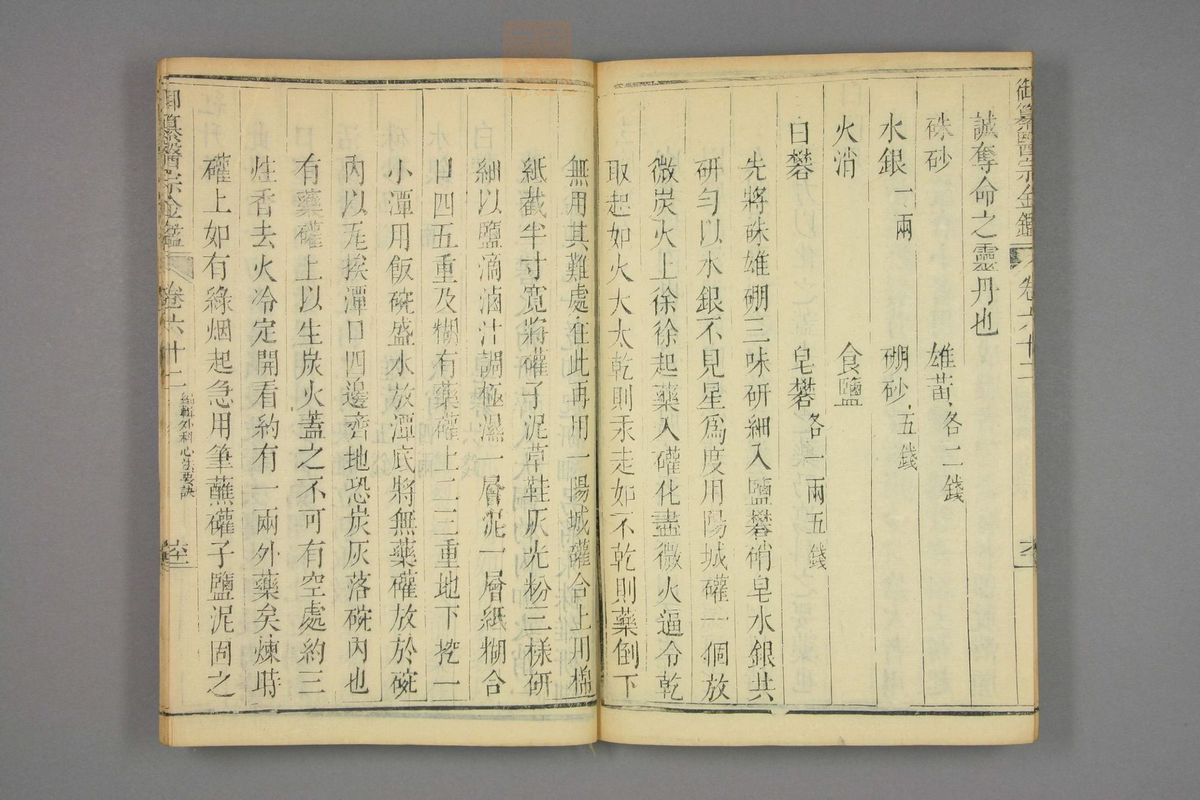 御纂醫宗金鑑 卷六十二
誠奪命之靈丹也
硃砂 雄黃各二錢
水銀一兩 硼砂五錢
火消 食鹽
白礬 皂礬各一兩五錢
先將硃雄硼三味研細入鹽礬硝皂水銀共
研勻以水銀不見星為度用陽城礶一個放
微炭火上徐徐起藥入礶化盡微火逼令乾
取起如火大太乾則汞走如不乾則藥倒下
無用其難處在此再用一陽城礶合上用棉
紙截半寸寬將礶子泥草鞋灰光粉三樣研
細以鹽滴滷汁調極濕一層泥一層紙糊合
口四五重及糊有藥礶上二三重地下挖一
小潭用飯碗盛水放潭底將無藥礶放於碗
內以瓦挨潭口四邊齊地恐炭灰落碗內也
有藥礶上以生炭火蓋之不可有空處約三
炷香去火冷定開看約有一兩外藥矣煉時
礶上如有綠烟起急用筆蘸礶子鹽泥固之
御纂醫宗金鑑 卷六十二 編輯外科心法要訣